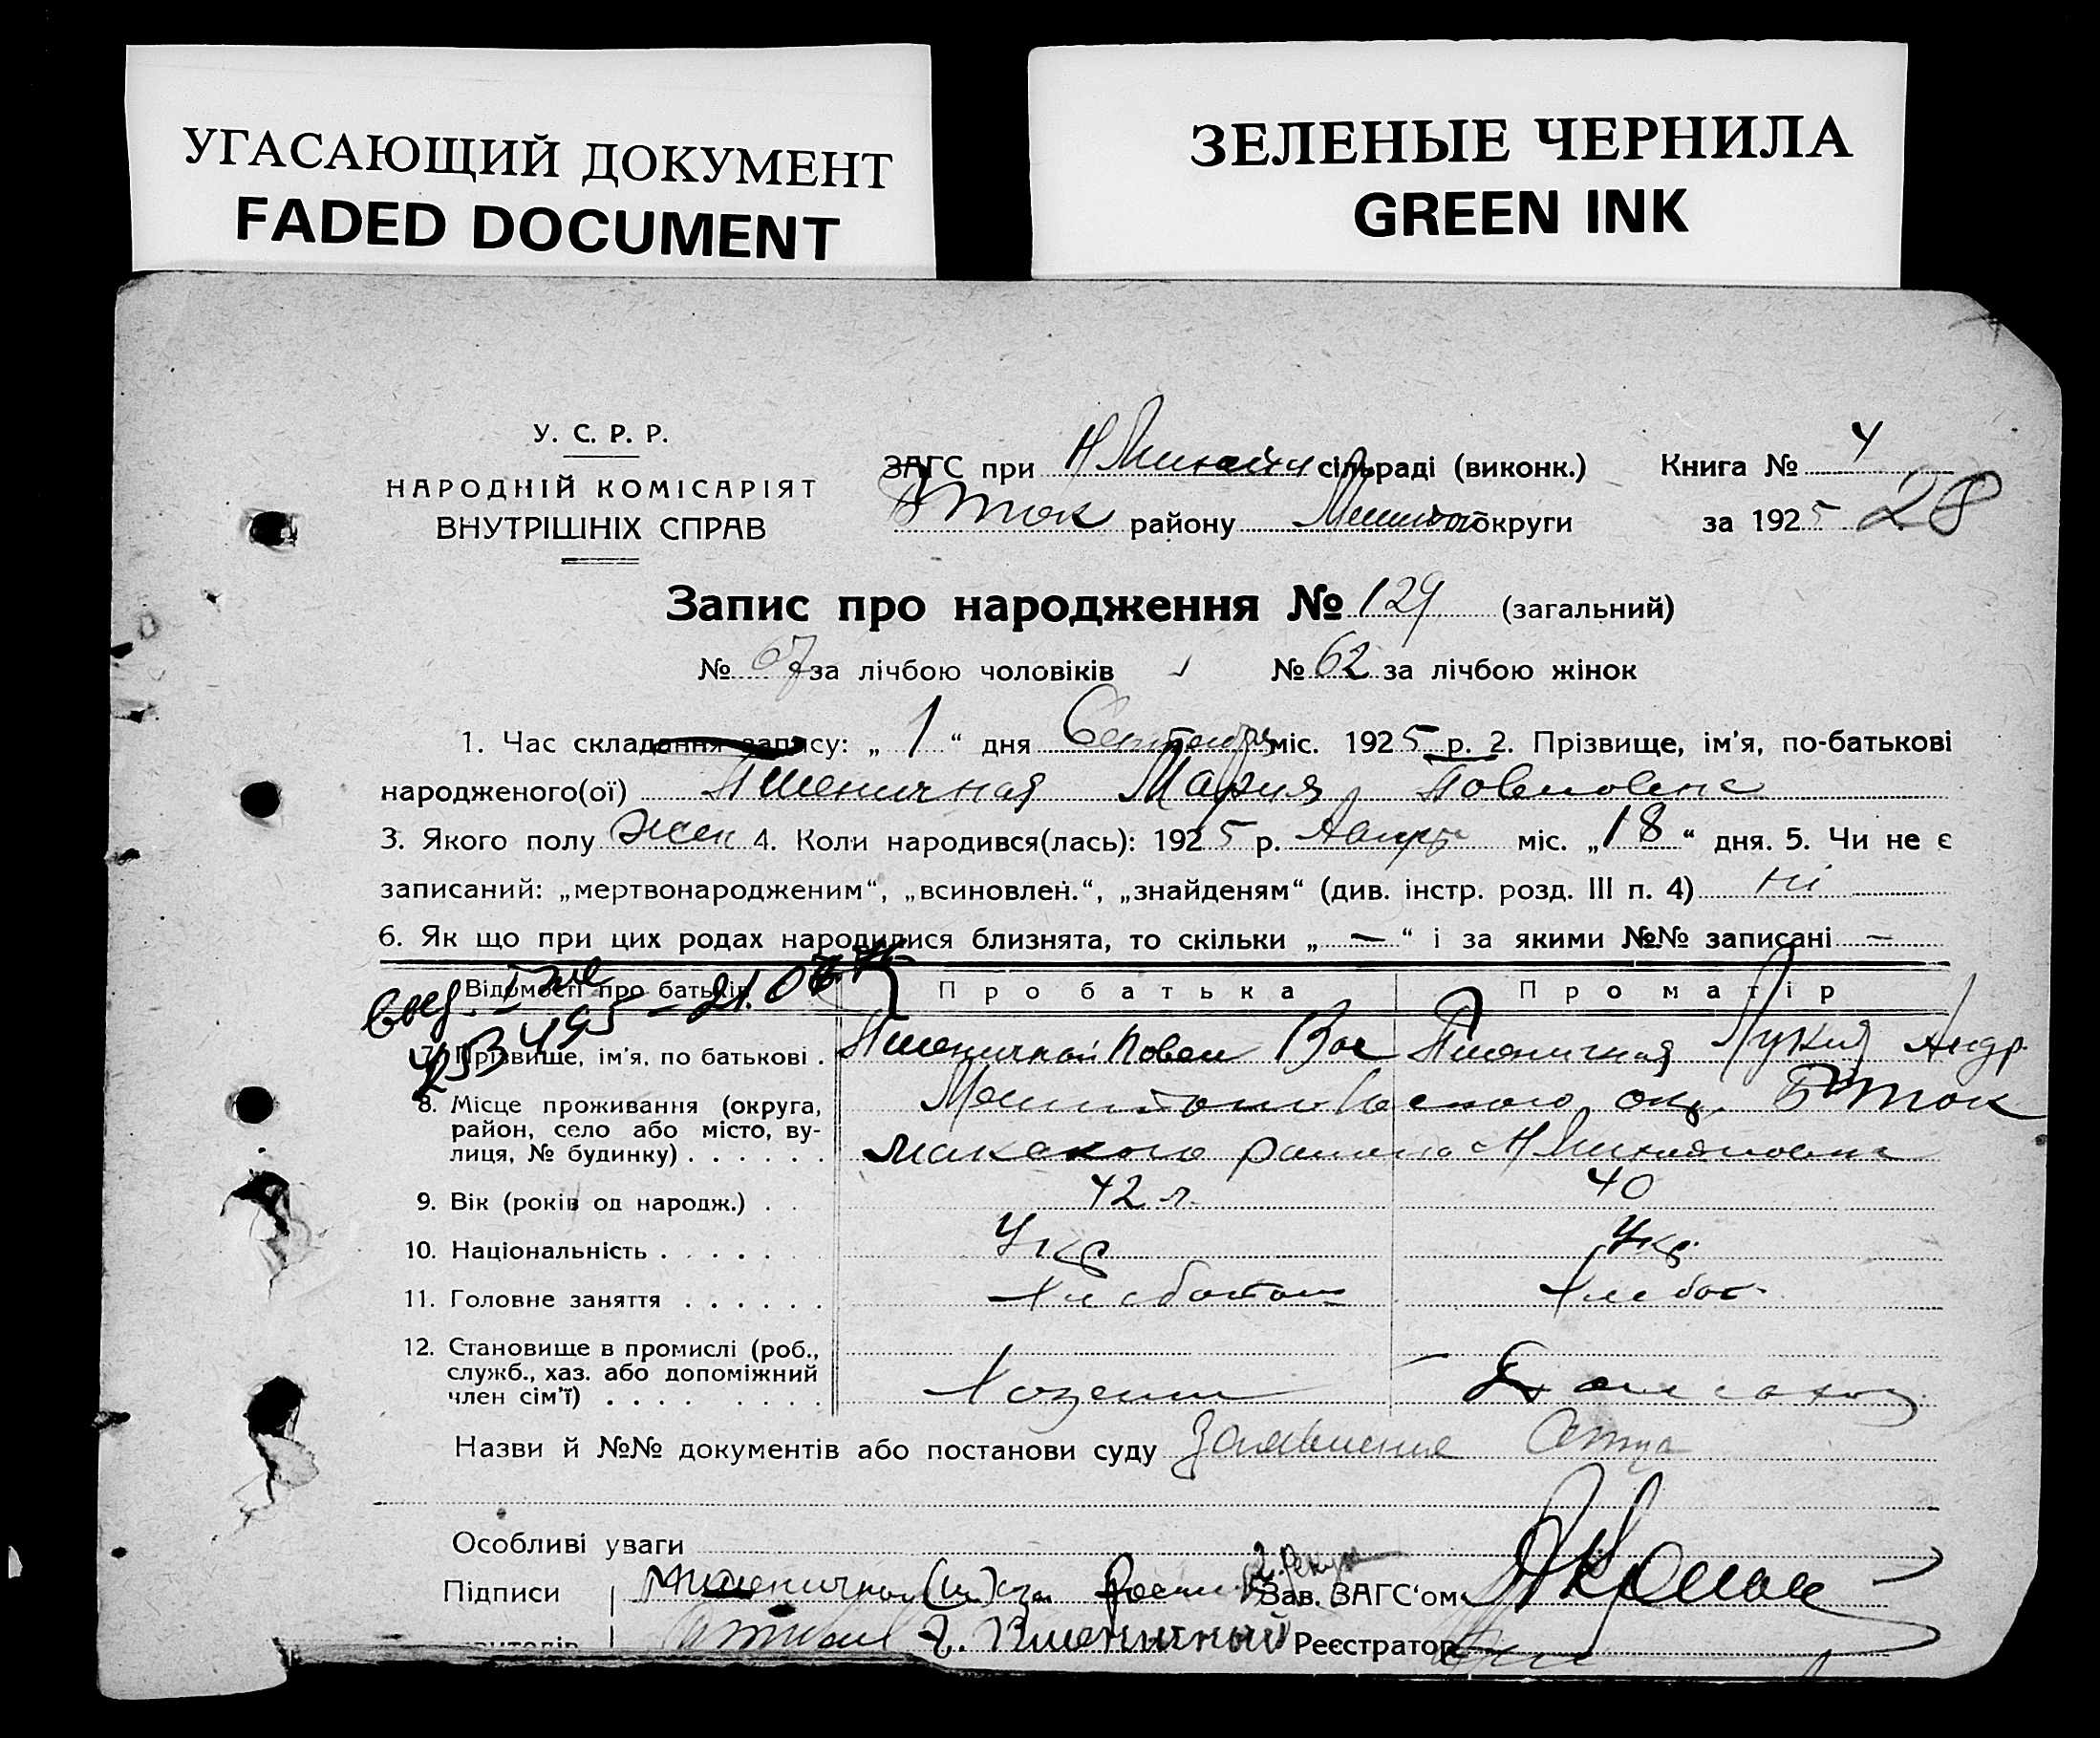 УГАСАЮЩИЙ ДОКУМЕНТ
FADED DOCUMENT
ЗЕЛЕНЫЕ ЧЕРНИЛА
GREEN INK
У. С. Р. Р.
НАРОДНІЙ КОМІСАРІЯТ
ВНУТРІШНІХ СПРАВ
ЗАГС при сільраді (виконк.) Книга № 4
Б Ток району округи за 1925 28
Запис про народження № 129 (загальний)
№ 67 за лічбою чоловіків № 62 за лічбою жінок
1. Час складання запису: „ 1 “ дня Сентября міс. 1925 р. 2. Прізвище, ім’я, по-батькові
народженого(ої) Пшеничная Мария Повловна
3. Якого полу жен 4. Коли народився(лась): 1925 р. Август міс. „18“ дня. 5. Чи не є
записаний: „мертвонародженим“, „всиновлен.“, „знайденям“ (див. інстр. розд. III п. 4) ні
6. Як що при цих родах народилися близнята, то скільки „ — “ і за якими №№ записані —
Відомості про батьків Про батька Про матір
7. Прізвище, ім’я, по батькові . Пшеничной Повел Вас Пшеничная Лукия Андр.
8. Місце проживання (округа, окр. Б Ток
район, село або місто, ву-
лиця, № будинку) . . . . . . макского
9. Вік (років од народж.) . . 42 л. 40
10. Національність . . . . . . Укр Укр.
11. Головне заняття . . . . . . Хлебопаш Хлебоп
12. Становище в промислі (роб.,
служб., хаз. або допоміжний
член сім’ї) . . . . . . . . Хозяин Домохоз
Назви й №№ документів або постанови суду Заявление Отца
Особливі уваги
Підписи Зав. ЗАГС‘ом
Пшеничный Реєстратор